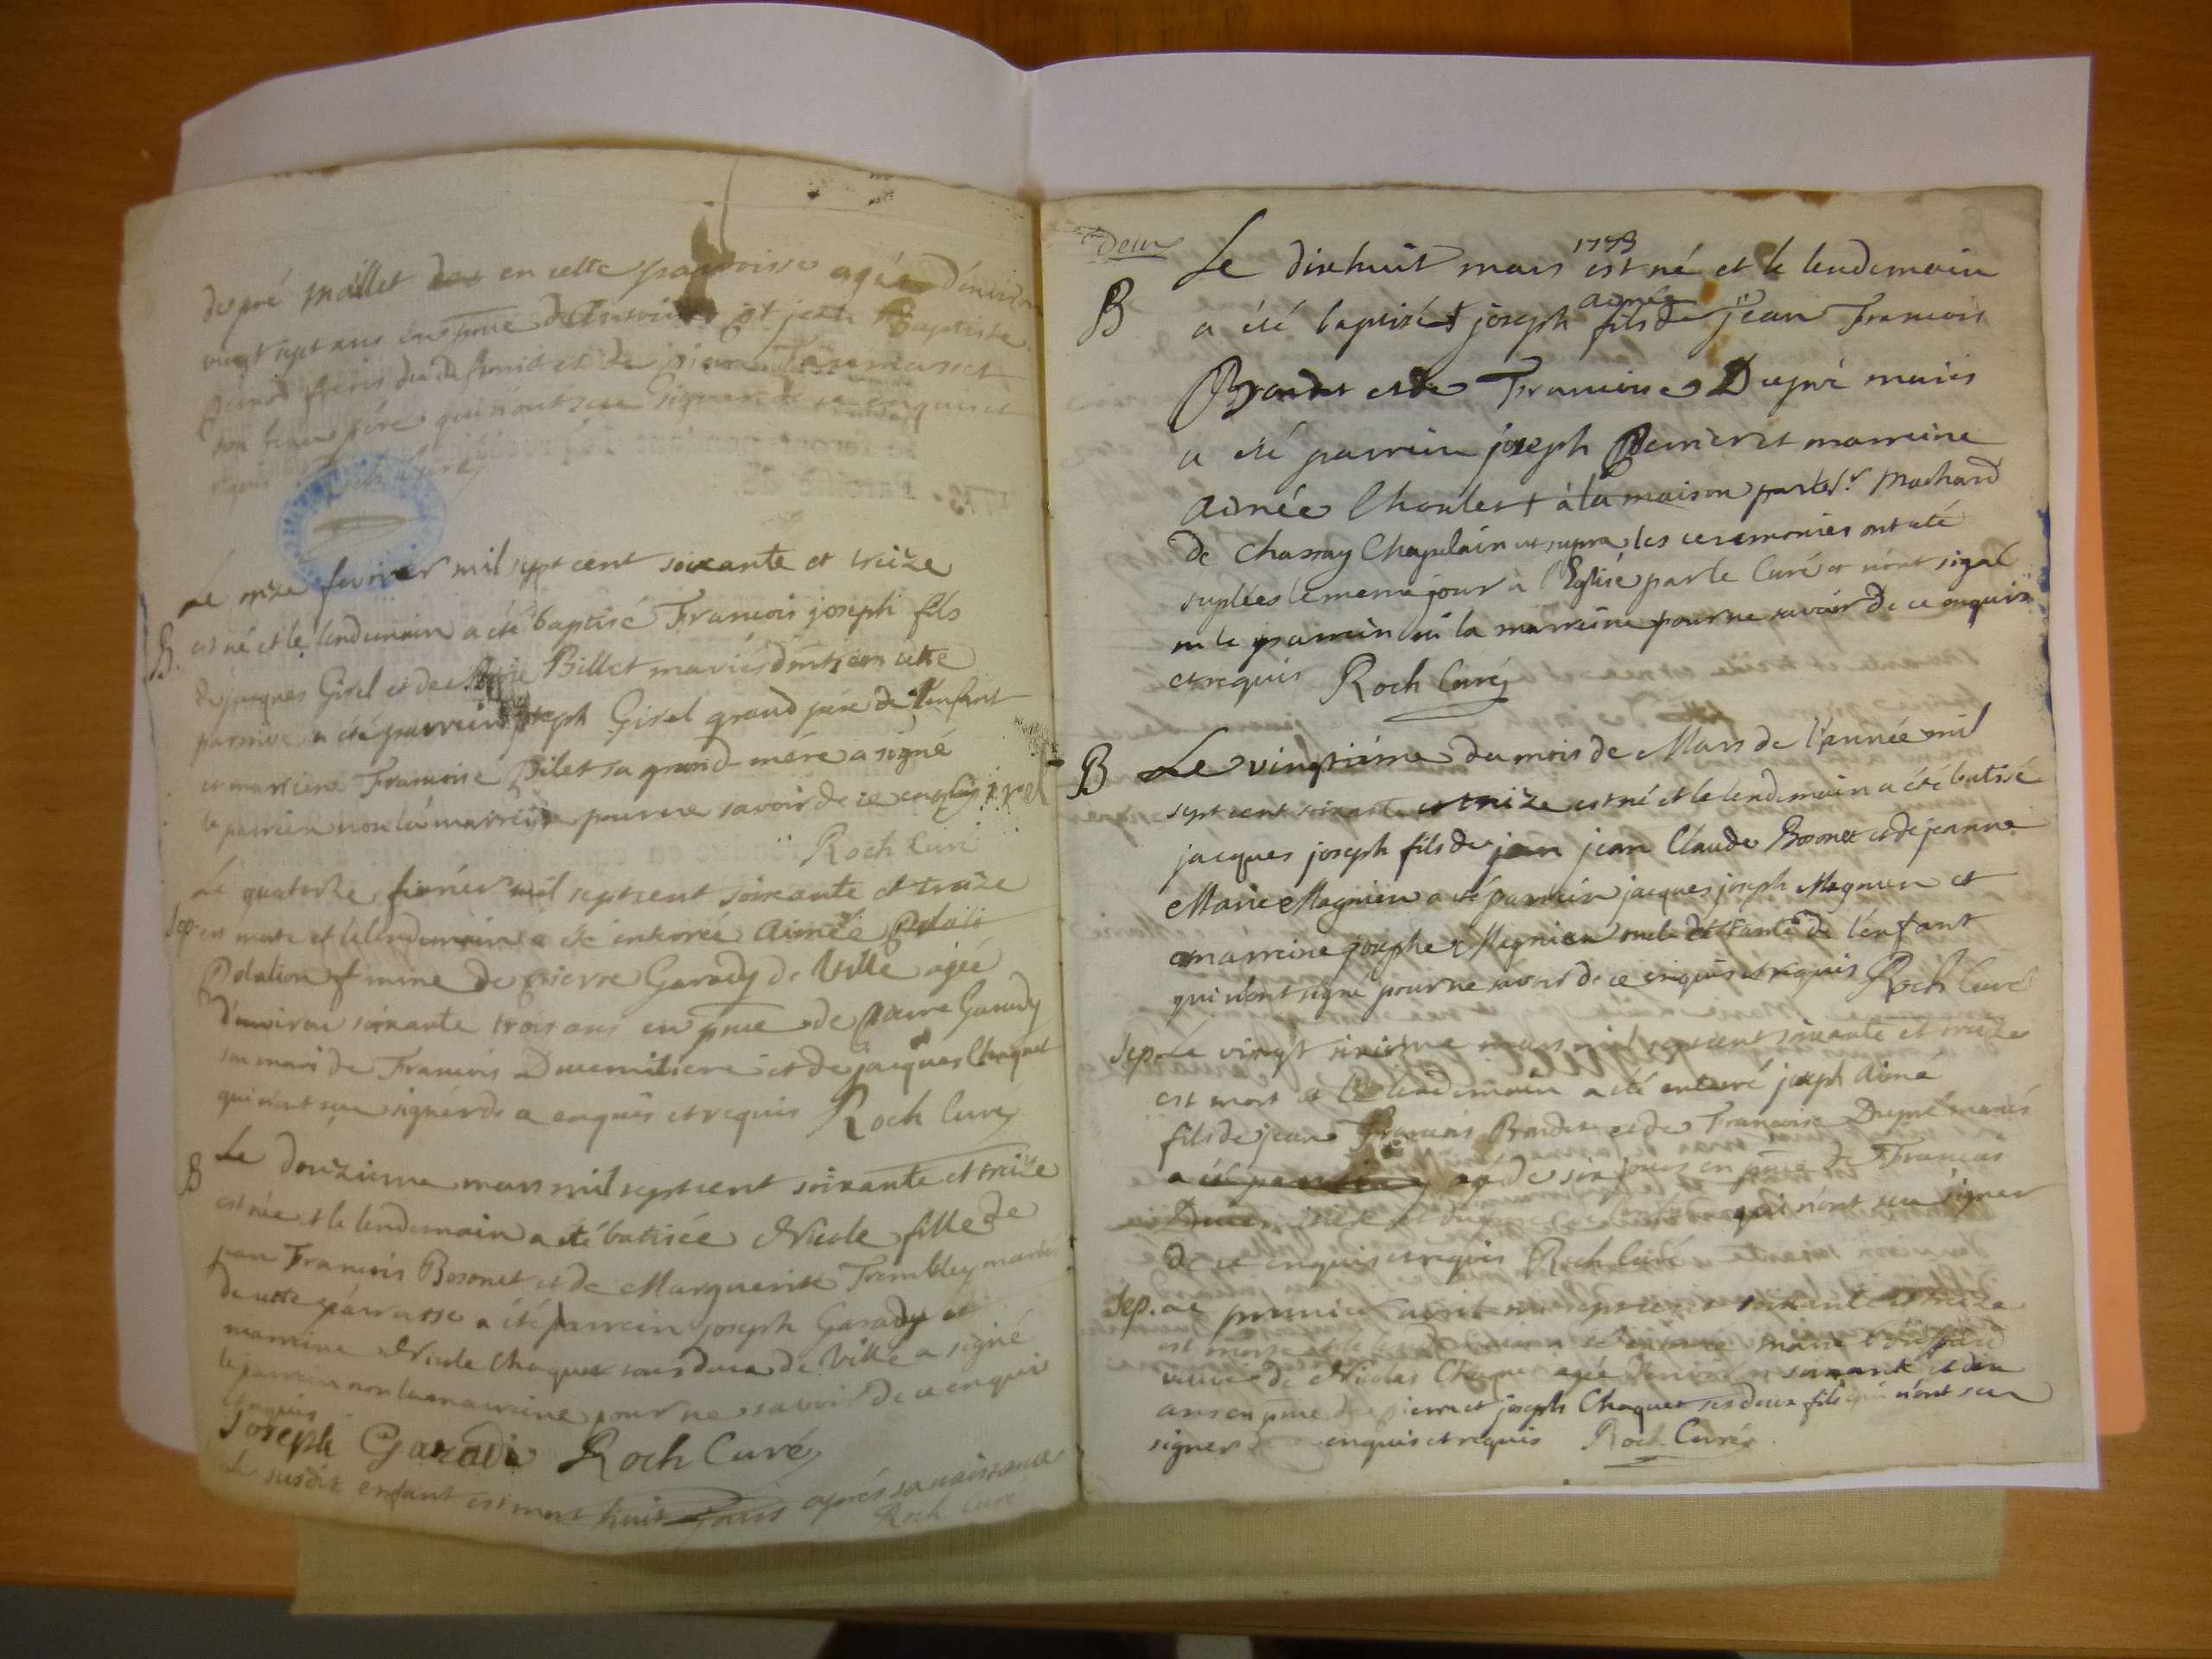 de pré Maillet en cette parroisse agée d'environ
vingt sept ans en pnce d'Antoine et jean Baptiste
freres du defunit et de pierre
son beau pére qui n'ont sceu signer de ce enquis et
requis Roch Curé
Le onze fevrier mil sept cent soixante et treize
B. est né et le lendemain a été baptisé Francois joseph fils
de jacques Girel et de Billet mariés en cette
parroisse a été parrein joseph Girel grand pére de l'enfant
et marreine Francoise Bilet sa grand-mére a signé
le parrein non la marreine pour ne savoir de ce enquis
Roch Curé
Le quatorze fevrier mil sept cent soixante et treize
Sep. est morte et le lendemain a été enterrée Aimée
Polation femme de pierre Garady de Ville agée
d'environ soixante trois ans en pnce de pierre Garady
son mari de Francois Ducmiliere et de jacques Chaquet
qui n'ont sceu signer de ce enquis et requis Roch Curé
B Le douzieme mars mil sept cent soixante et treize
est née et le lendemain a été batisée Nicole fille de
jean Francois Bosonet et de Marguerite Trembley mariés
de cette parroisse a été parrein joseph Garady et
marreine Nicole Chaquet tous deux de Ville a signé
le parrein non la marreine pour ne savoir de ce enquis
et requis
Joseph Garadi Roch Curé
Le susdit enfant est mort huit jours aprés sa naissance
Roch Curé
deux
1773
Le dixhuit mars est né et le lendemain
B a été baptisé + joseph aimée fils de jean Francois
Brondet et de Francoise Dupré mariés
a été parrein joseph Perrier et marreine
Aimée Choulet + à la maison par le Sr Machard
de Chassay Chapelain ut supra les ceremonies ont été
suplées le meme jour a l'Eglise par le Curé et n'ont signé
ni le parrein ni la marreine pour ne savoir de ce enquis
et requis Roch Curé
B Le vingtiéme du mois de Mars de l'année mil
sept cent soixante et treize est né et le lendemain a été batisé
jacques joseph fils de jean jean Claude Bosonet et de jeanne
Marie Magnien a été parrein jacques joseph Magnien et
marreine josephe Magnien oncle et tante de l'enfant
qui n'ont signé pour ne savoir de ce enquis et requis Roch Curé
Sep. Le vingt sixieme mars mil sept cent soixante et treize
est mort et le lendemain a été enterré joseph Aimé
fils de jean Francois Brondet et de Francoise Dupré mariés
a été agé de six jours en pnce de Francois
qui n'ont sceu signer
de ce enquis et requis Roch Curé
Sep. Le premier avril mil sept cent soixante et treize
est morte et le lendemain a été enterrée marie
veuve de Nicolas Chaquet agée d'environ soixante et dix
ans en pnce de pierre et joseph Chaquet ses deux fils qui n'ont sceu
signer de ce enquis et requis Roch Curé